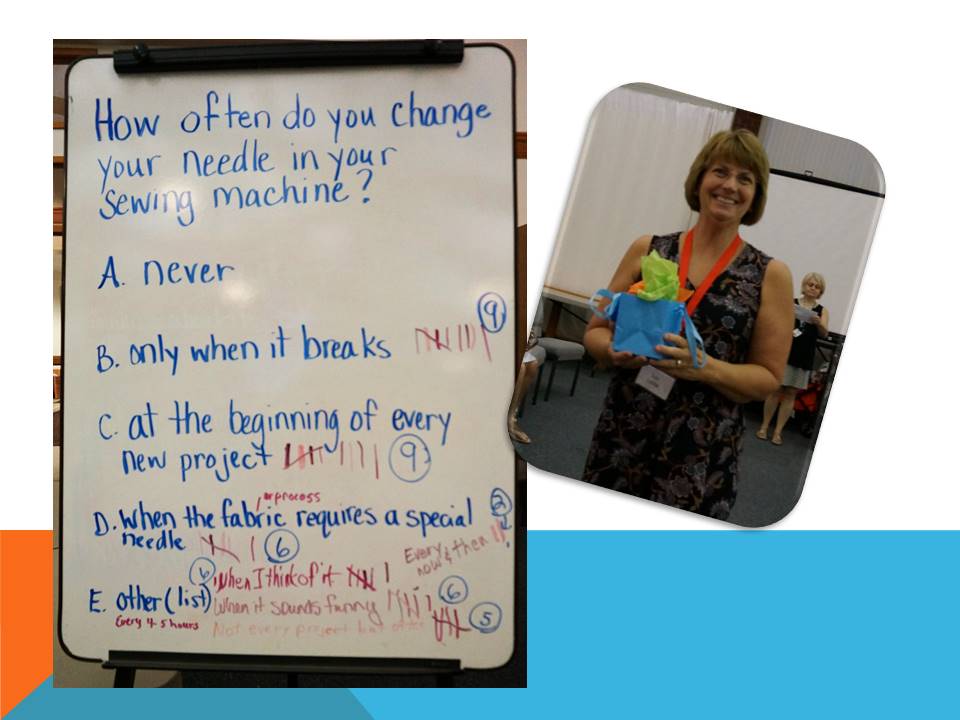 How often do you change
your needle in your
sewing machine?
A. never
B. only when it breaks 9
C. at the beginning of every
new project 9
or process
D. When the fabric requires a special
needle 6
Every now & then 2
E. other (list) When I think of it 6
When it sounds funny 6
Every 4-5 hours
Not every project but often 5